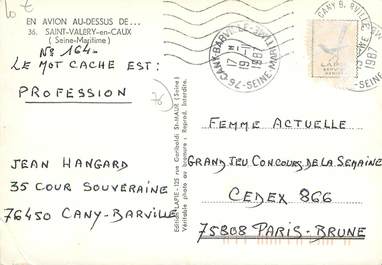 10 €
EN AVION AU-DESSUS DE...
36. SAINT-VALERY-en-CAUX
(Seine-Maritime)
N°S 164-
LE MOT CACHE EST:
PROFESSION
76
JEAN HANGARD
35 COUR SOUVERAINE
76450 CANY-BARVILLE
Edition LAPIE - 125 rue Garibaldi St-MAUR (Seine)
Véritable photo au bromure - Reprod. Interdite.
76-CANY-BARVILLE-
SEINE-MARITIME
17 H
19-1
1987
CANY B. RVILLE
1987
LAPIE
FEMME ACTUELLE
GRAND JEU CONCOURS DE LA SEMAINE
CEDEX 866
75808 PARIS-BRUNE